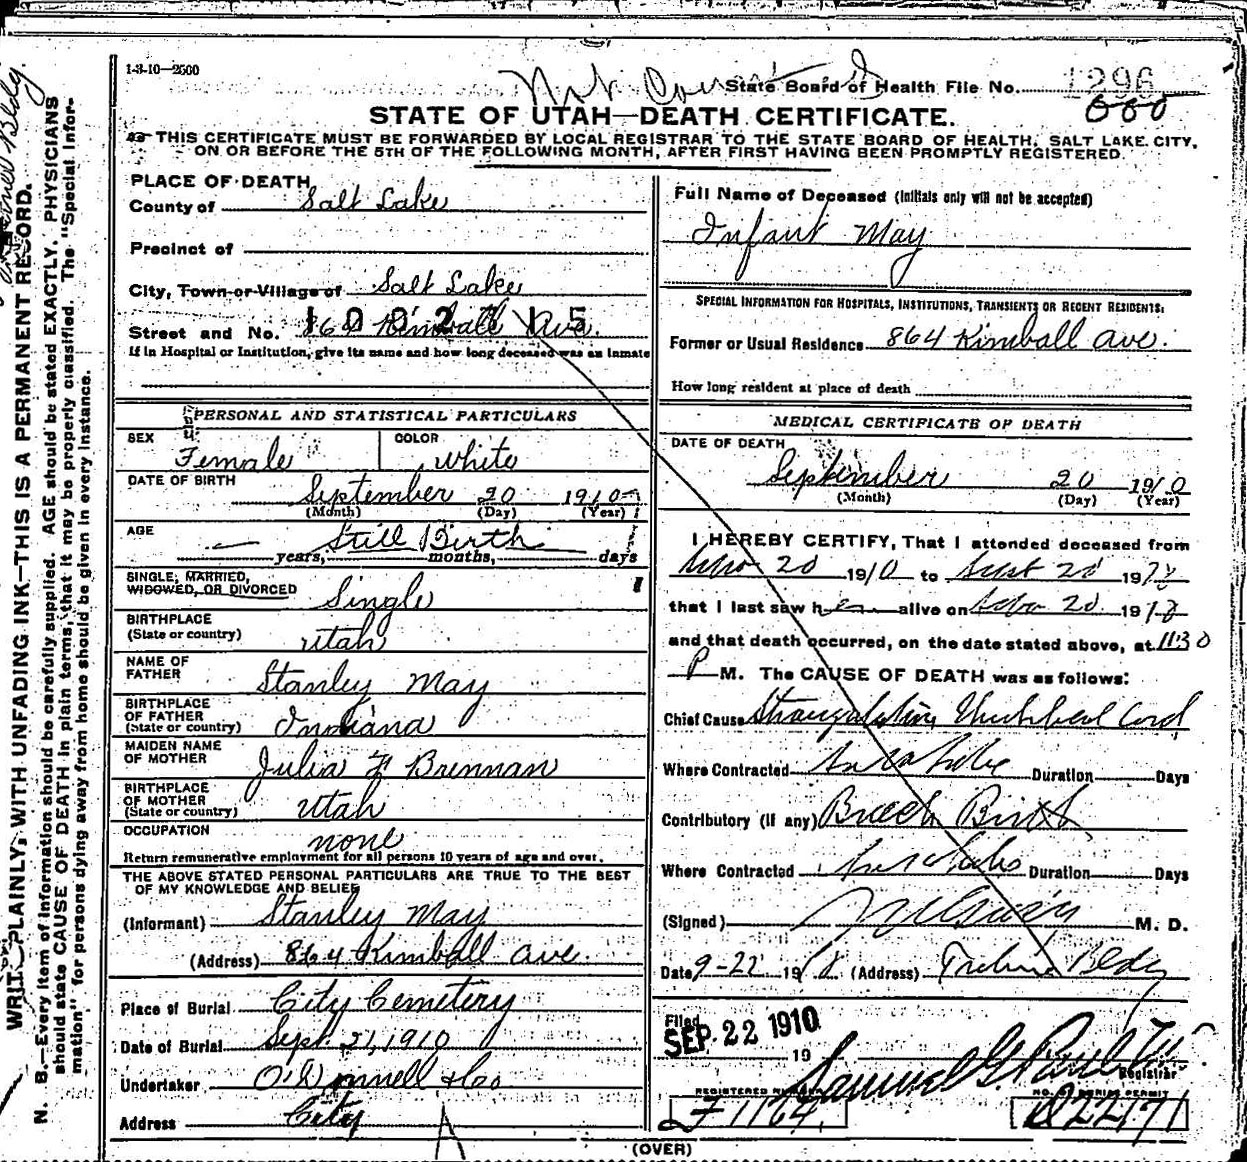 1-3-10—2500
Not Count
State Board of Health File No. 1296
STATE OF UTAH—DEATH CERTIFICATE.
THIS CERTIFICATE MUST BE FORWARDED BY LOCAL REGISTRAR TO THE STATE BOARD OF HEALTH, SALT LAKE CITY,
ON OR BEFORE THE 5TH OF THE FOLLOWING MONTH, AFTER FIRST HAVING BEEN PROMPTLY REGISTERED.
PLACE OF DEATH
County of Salt Lake
Precinct of
City, Town or Village of Salt Lake
Street and No. 864 Kimball Ave.
If in Hospital or Institution, give its name and how long deceased was an inmate
PERSONAL AND STATISTICAL PARTICULARS
SEX Female COLOR White
DATE OF BIRTH September 20 1910
(Month) (Day) (Year)
AGE Still Birth
years, months, days
SINGLE, MARRIED,
WIDOWED, OR DIVORCED Single
BIRTHPLACE
(State or country) Utah
NAME OF
FATHER Stanley May
BIRTHPLACE
OF FATHER
(State or country) Indiana
MAIDEN NAME
OF MOTHER Julia F Brennan
BIRTHPLACE
OF MOTHER
(State or country) Utah
OCCUPATION none
Return remunerative employment for all persons 10 years of age and over.
THE ABOVE STATED PERSONAL PARTICULARS ARE TRUE TO THE BEST
OF MY KNOWLEDGE AND BELIEF
(Informant) Stanley May
(Address) 864 Kimball Ave.
Place of Burial City Cemetery
Date of Burial Sept. 21, 1910
Undertaker O'Donnell & Co
Address City
Full Name of Deceased (Initials only will not be accepted)
Infant May
SPECIAL INFORMATION FOR HOSPITALS, INSTITUTIONS, TRANSIENTS OR RECENT RESIDENTS.
Former or Usual Residence 864 Kimball Ave.
How long resident at place of death
MEDICAL CERTIFICATE OF DEATH
DATE OF DEATH
September 20 1910
(Month) (Day) (Year)
I HEREBY CERTIFY, That I attended deceased from
Sept 20 1910 to Sept 20 1910
that I last saw her alive on Sept 20 1910
and that death occurred, on the date stated above, at 11 30
P M. The CAUSE OF DEATH was as follows:
Chief Cause Strangulation Umbilical Cord
Where Contracted Duration Days
Contributory (if any) Breech Birth
Where Contracted Duration Days
(Signed) M. D.
Date 9-22 1910 (Address) Tribune Bldg
Filed
SEP. 22 1910
19 Samuel G. Paul
Registrar
REGISTERED NUMBER
F 1164
NO. OF BURIAL PERMIT
D22171
(OVER)
WRITE PLAINLY, WITH UNFADING INK—THIS IS A PERMANENT RECORD.
N. B.—Every item of information should be carefully supplied. AGE should be stated EXACTLY. PHYSICIANS
should state CAUSE OF DEATH in plain terms, that it may be properly classified. The "Special Infor-
mation" for persons dying away from home should be given in every instance.